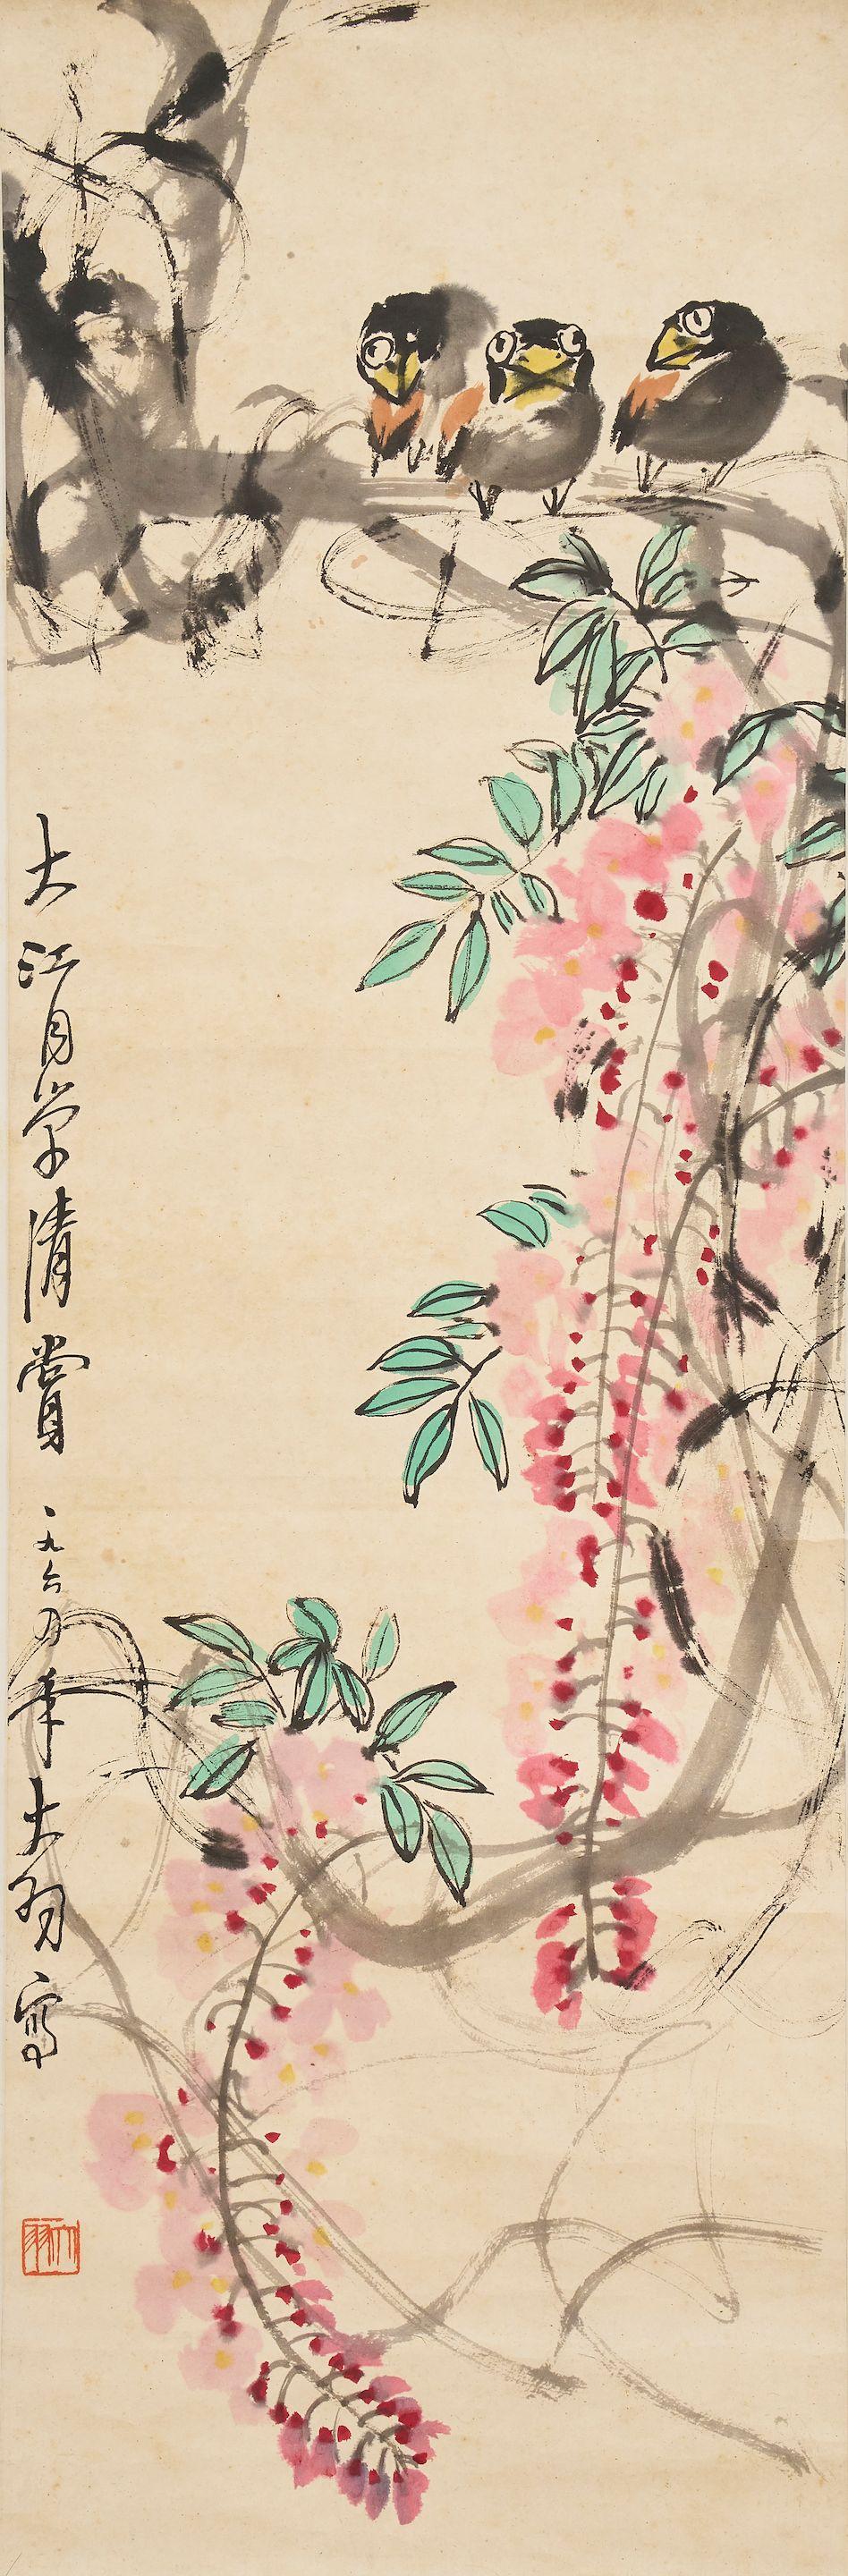 大江同学清賞
一九六〇年大羽寫
大羽